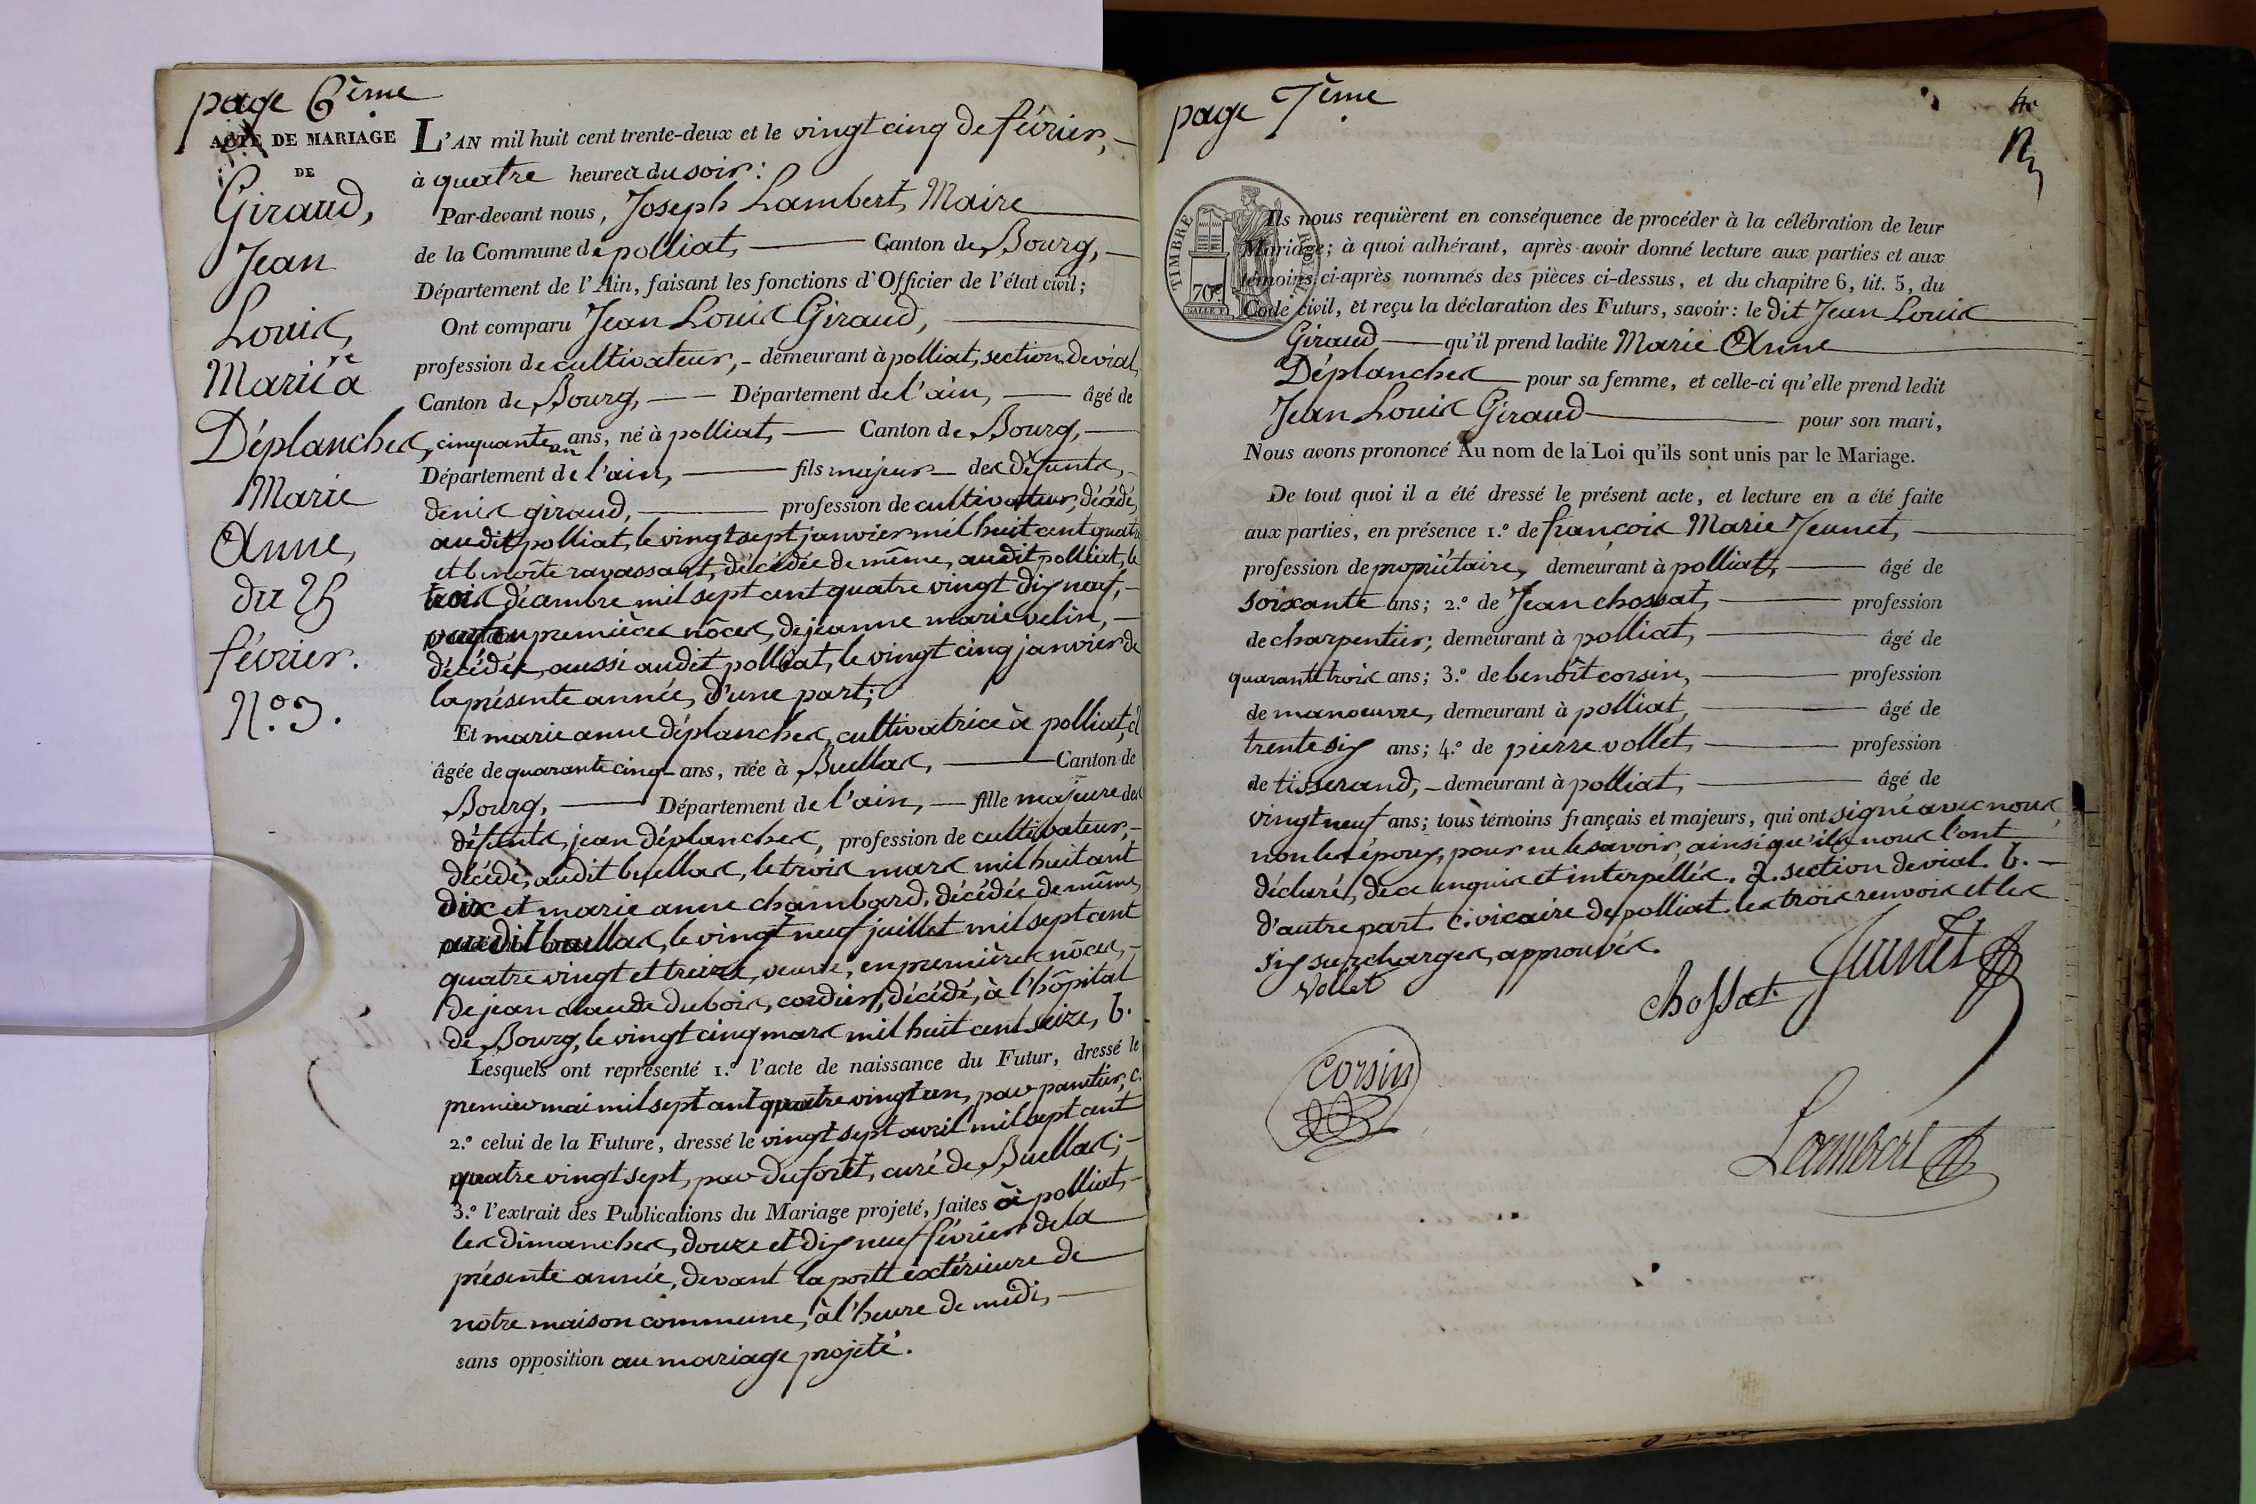 page 6ème
ACTE DE MARIAGE
DE
Giraud,
Jean
Louis,
Marié à
Déplanches,
Marie
Anne,
du 25
février.
N.º 3.
L'AN mil huit cent trente-deux et le vingt cinq de février,
à quatre heures du soir :
Par-devant nous, Joseph Lambert, Maire
de la Commune de polliat, Canton de Bourg,
Département de l'Ain, faisant les fonctions d'Officier de l'état civil ;
Ont comparu Jean Louis Giraud,
profession de cultivateur, demeurant à polliat, section de vial,
Canton de Bourg, Département de l'ain, âgé de
cinquante un ans, né à polliat, Canton de Bourg,
Département de l'ain, fils majeur des défunts,
denis giraud, profession de cultivateur, décédé,
audit polliat, le vingt sept janvier mil huit cent quatre
et benoîte ravassart, décédée de même, audit polliat, le
trois décembre mil sept cent quatre vingt dix neuf,
veuf en premières nôces, de jeanne marie velin,
décédée, aussi audit polliat, le vingt cinq janvier de
la présente année, d'une part ;
Et marie anne déplanches, cultivatrice à polliat,
âgée de quarante cinq ans, née à Buellas, Canton de
Bourg, Département de l'ain, fille majeure des
défunts, jean déplanches, profession de cultivateur,
décédé, audit buellas, le trois mars mil huit cent
dix et marie anne chambard, décédée de même,
audit buellas, le vingt neuf juillet mil sept cent
quatre vingt et treize, veuve, en premières nôces,
de jean claude dubois, cordier, décédé, à l'hôpital
de Bourg, le vingt cinq mars mil huit cent seize, b.
Lesquels ont représenté 1.º l'acte de naissance du Futur, dressé le
premier mai mil sept cent quatre vingt un, par panetier, c.
2.º celui de la Future, dressé le vingt sept avril mil sept cent
quatre vingt sept, par duforêt, curé de Buellas ;
3.º l'extrait des Publications du Mariage projeté, faites à polliat,
les dimanches, douze et dix neuf février de la
présente année, devant la porte extérieure de
notre maison commune, à l'heure de midi,
sans opposition au mariage projeté.
page 7ème
TIMBRE ROYAL
70c
Ils nous requièrent en conséquence de procéder à la célébration de leur
Mariage ; à quoi adhérant, après avoir donné lecture aux parties et aux
témoins ci-après nommés des pièces ci-dessus, et du chapitre 6, tit. 5, du
Code civil, et reçu la déclaration des Futurs, savoir : le dit Jean Louis
Giraud qu'il prend ladite Marie Anne
Déplanches pour sa femme, et celle-ci qu'elle prend ledit
Jean Louis Giraud pour son mari,
Nous avons prononcé Au nom de la Loi qu'ils sont unis par le Mariage.
De tout quoi il a été dressé le présent acte, et lecture en a été faite
aux parties, en présence 1.º de françois Marie Jeunet,
profession de propriétaire, demeurant à polliat, âgé de
soixante ans ; 2.º de Jean chossat, profession
de charpentier, demeurant à polliat, âgé de
quarante trois ans ; 3.º de benoît corsin, profession
de manoeuvre, demeurant à polliat, âgé de
trente six ans ; 4.º de pierre vollet, profession
de tisserand, demeurant à polliat, âgé de
vingt neuf ans ; tous témoins français et majeurs, qui ont signé avec nous,
non les époux, pour ne le savoir, ainsi qu'ils nous l'ont
déclaré, de ce enquis et interpellés. a. section de vial. b.
d'autre part. c. vicaire de polliat. les trois renvois et les
six surcharges, approuvés.
Vollet
chossat
Jeunet
Corsin
Lambert